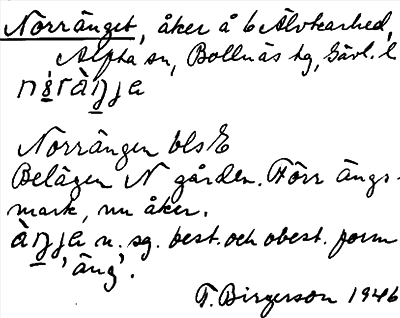 Norränget, åker å 6 Älvkarhed,
Alfta sn, Bollnäs tg, Gävl. l
Norrängen bls E
Belägen N gården. Förr ängs-
mark, nu åker.
n. sg. best. och obest. form
'äng'.
T. Birgerson 1946